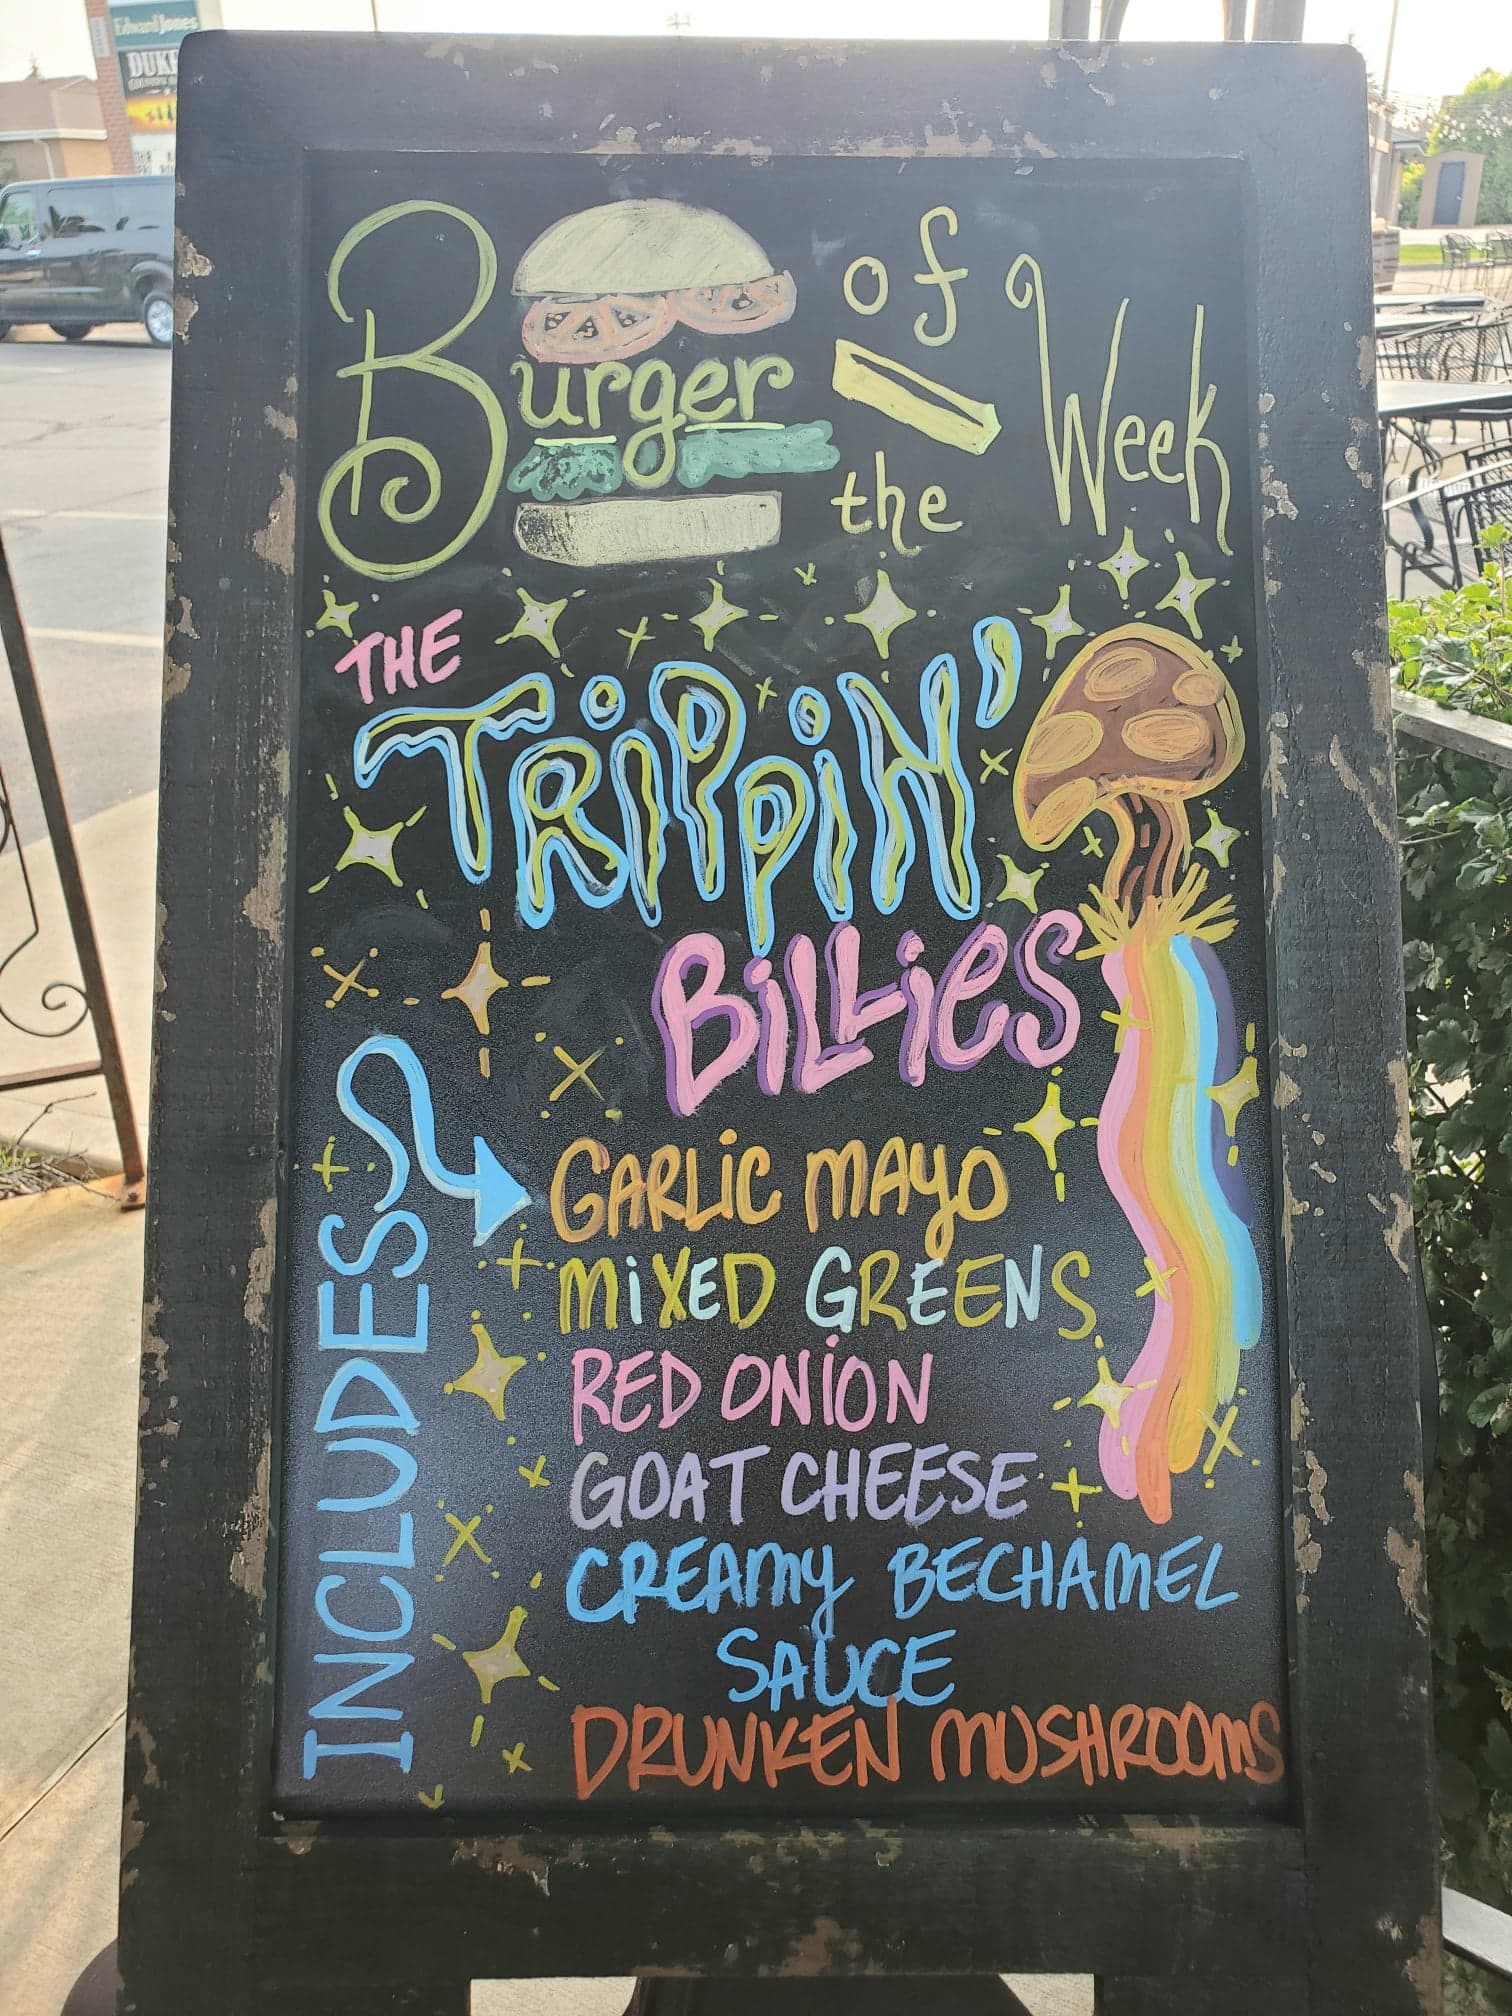 Edward Jones
DUKE
Burger of the Week
THE
TRiPPiN'
BiLLieS
INCLUDES
GARLiC MAYO
MiXED GREENS
RED ONiON
GOAT CHEESE
CREAMY BECHAMEL
SAUCE
DRUNKEN MUSHROOMS